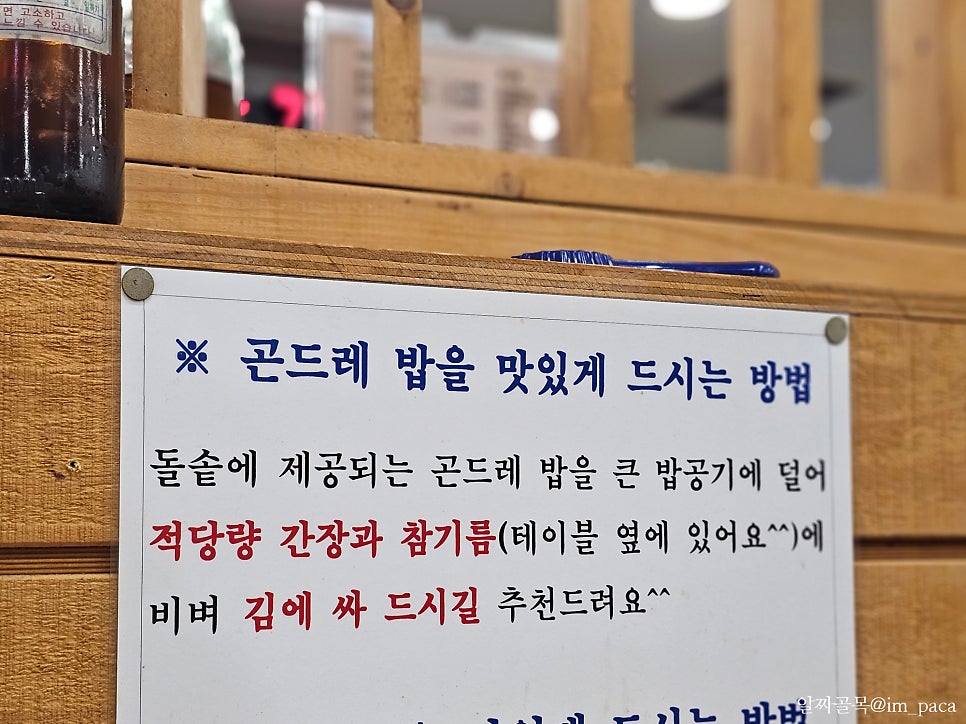 면 고소하고
느낄 수 있습니다
※ 곤드레 밥을 맛있게 드시는 방법
돌솥에 제공되는 곤드레 밥을 큰 밥공기에 덜어
적당량 간장과 참기름(테이블 옆에 있어요^^)에
비벼 김에 싸 드시길 추천드려요^^
드시는 방법
알짜골목@im_paca